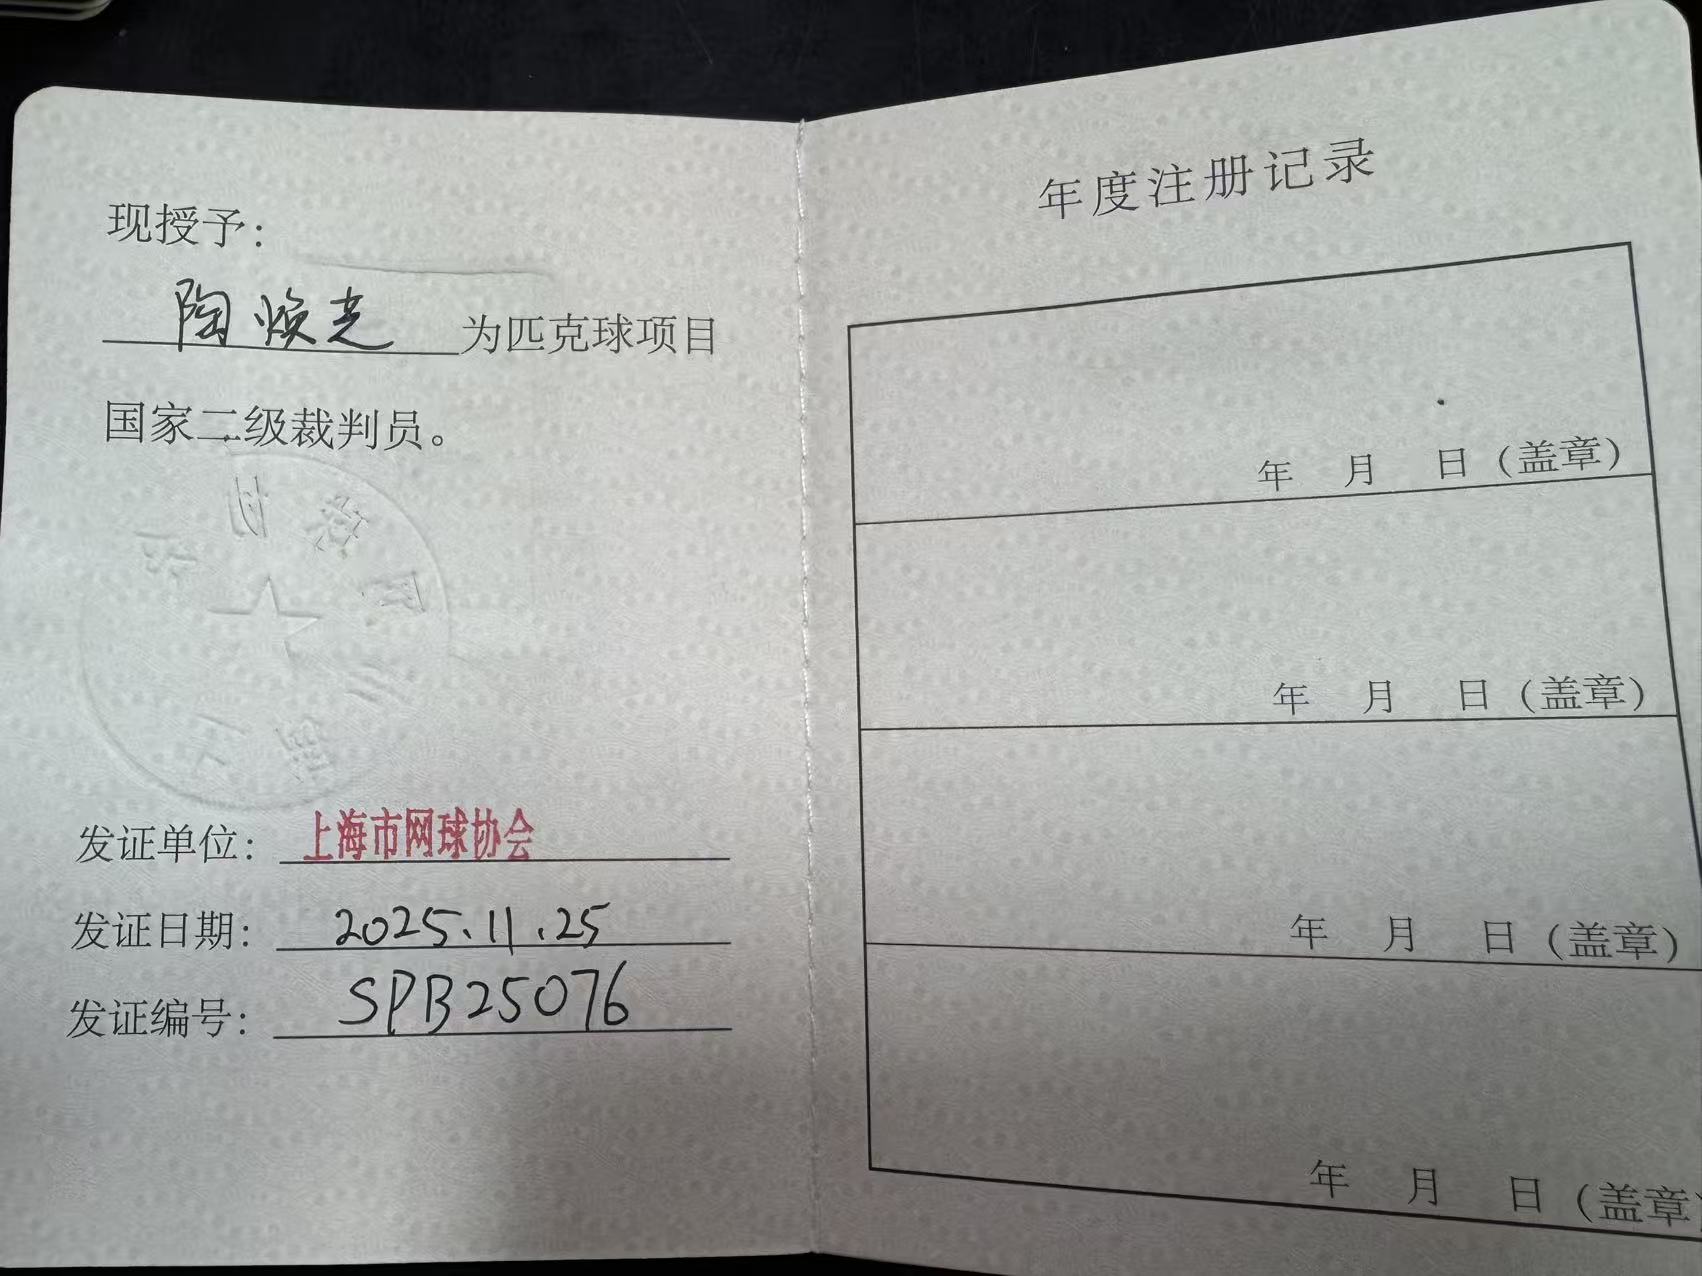 现授予：
陶焕芝 为匹克球项目
国家二级裁判员。
发证单位： 上海市网球协会
发证日期： 2025.11.25
发证编号： SPB25076
年度注册记录
年 月 日（盖章）
年 月 日（盖章）
年 月 日（盖章）
年 月 日（盖章）